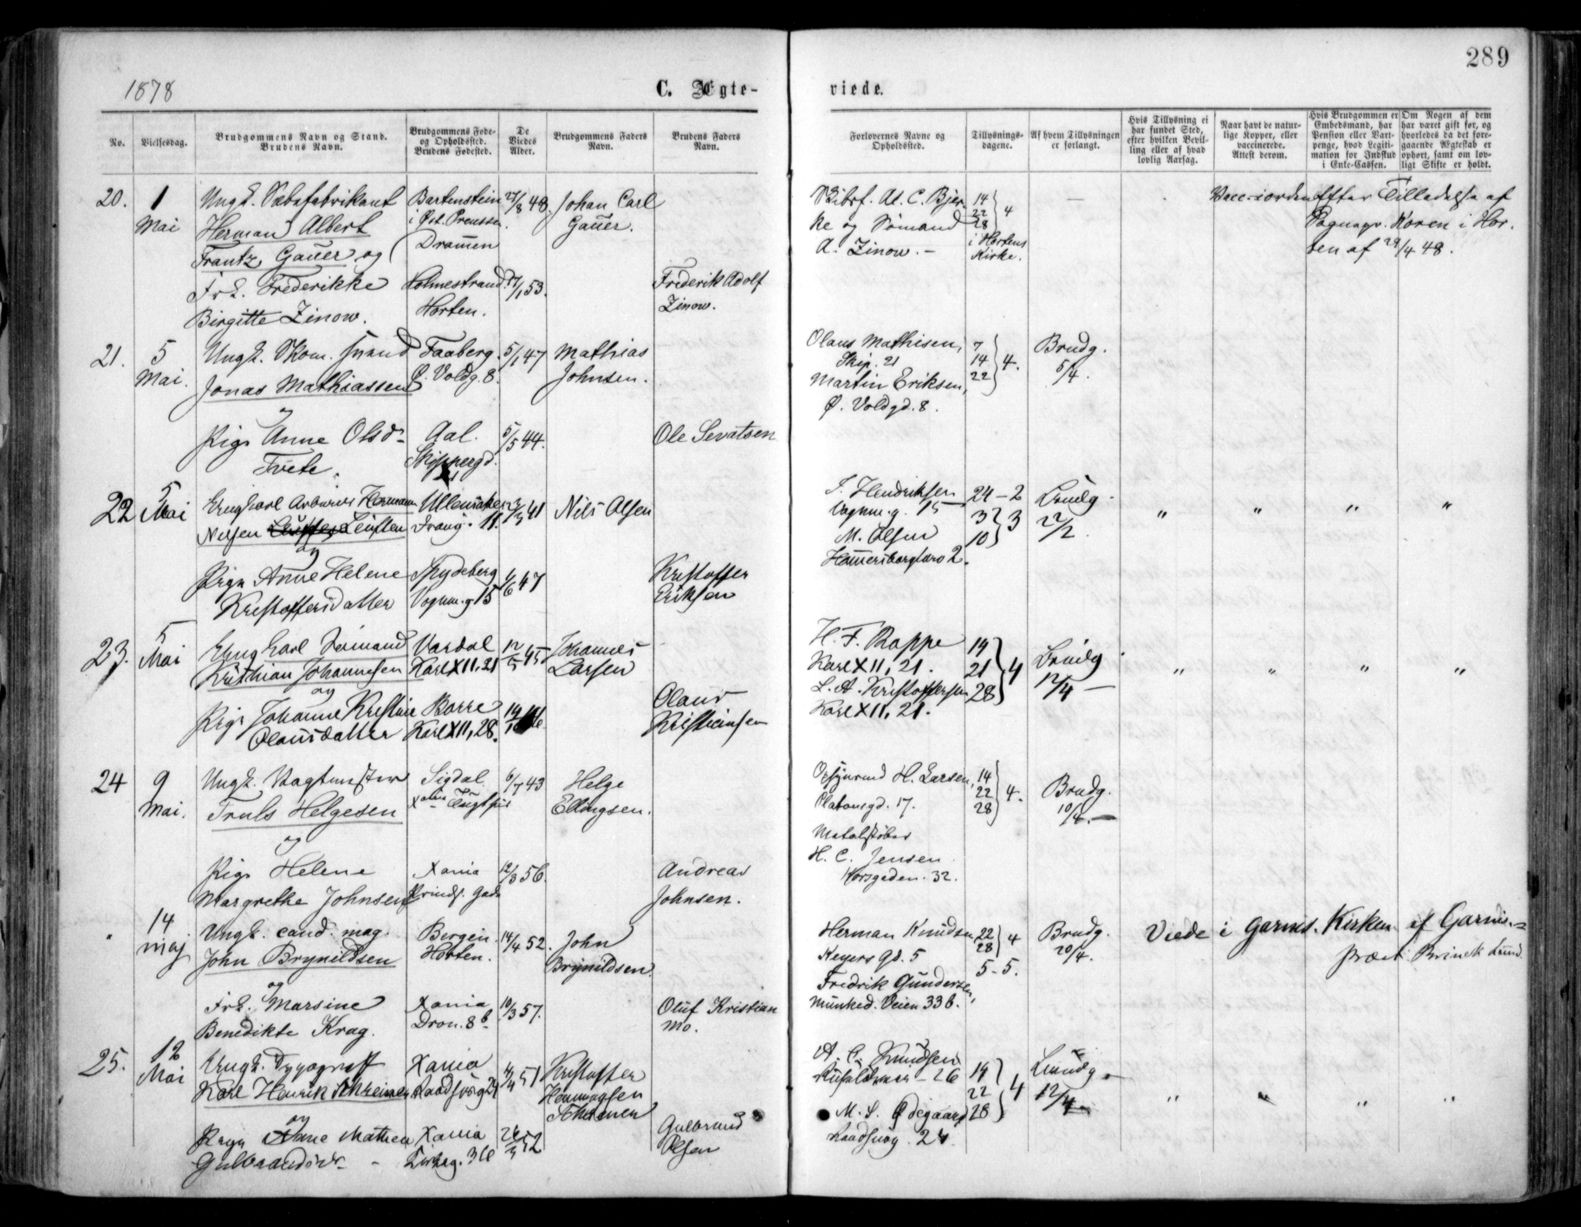 289
1878
C. Ægte-
viede.
No.
Vielsesdag.
Brudgommens Navn og Stand.
Brudens Navn.
Brudgommens Føde-
og Opholdssted.
Brudens Fødested.
De
Viedes
Alder.
Brudgommens Faders
Navn.
Brudens Faders
Navn.
Forlovernes Navne og
Opholdssted.
Tillysnings-
dagene.
Af hvem Tillysningen
er forlangt.
Hvis Tillysning ei
har fundet Sted,
efter hvilken Bevil-
ling eller af hvad
lovlig Aarsag.
Naar havt de natur-
lige Kopper, eller
vaccinerede.
Attest derom.
Hvis Brudgommen er
Embedsmand, har
Pension eller Vart-
penge, hvad Legiti-
mation for Indskud
i Enke-Cassen.
Om Nogen af dem
har været gift før, og
hvorledes da det fore-
gaaende Ægteskab er
ophørt, samt om lov-
ligt Skifte er holdt.
20.
1
Mai
Ungk. Sæbefabrikant
Herman Albert
Frantz Gauer og
Frk. Frederikke
Birgitte Zinow.
Bartenstein
i Øst. Preussen.
Dramen
Holmestrand.
Horten.
27/8 48.
27/1 53.
Johan Carl
Gauer.
Frederik Adolf
Zinow.
At. C. Bjer
ke og Sømand
A. Zinow. -
14
22
28
4
i Hortens
Kirke.
Efter Tilladelse af
Sognepr. Koren i Hor-
ten af
21.
5
Mai.
Ungk. Skom. svend
Jonas Mathiassen
og
Pige Anne Olsd-
Tveto.
Faaberg.
Ø. Voldg. 8.
Aal.
Skippergd.
5/1 47
5/5 44.
Mathias
Johnsen.
Ole Sevatsen
Olaus Mathisen,
Skip. 21
Martin Eriksen,
Ø. Voldgd. 8.
7
14
22
4.
Brudg.
5/4.
22
5
Mai
Ungkarl
Nilsen
og
Pige Anne Helene
Kristoffersdatter
Ullensaker
Vognm.g 15
41
1/6 47
Nils Olsen
Kristoffer
Eriksen
Hendriksen
Vognm.g. 15
M. Olsen
24-2
3
10
3
Brudg.
22/2
"
"
"
"
23.
5
Mai
Ungkarl
Kristian Johannesen
og
Pige Johanne Kristine
Olausdatter
Vardal
Karl XII, 21
Borre
Karl XII, 28.
45
Johannes
Larsen
Olaus
Kristiansen
H. F. Rappe
Karl XII, 21.
L. A. Kristoffersen
Karl XII, 21.
14
21
28
4
Brudg
12/4 -
"
"
"
"
24
9
Mai.
Ungk. Vagtmester
Truls Helgesen
og
Pige Helene
Margrethe Johnsen
Sigdal
Xania
Prinds. Gade
6/7 43
12/8 56.
Helge
Ellingsen.
Andreas
Johnsen.
H. Larsen,
Platousgd. 17.
Metalstøber
H. C. Jensen
Korsgaden. 32.
14
22
28
4.
Brudg.
10/4. -
14
maj
Ungk. cand. mag.
John Brynildsen
og
Frk. Marsine
Benedikte Krag.
Bergen.
Horten.
Xania
Dron. 8b
14/4 52.
10/3 57.
John
Brynildsen
Oluf Kristian
Mo.
Herman Knudsen
Keysers Gd. 5
Fredrik Gundersen,
Munked. Veien 33b.
22
28
4
5-5.
Brudg.
20/4.
Viede i Garnis. Kirken af Garnis.-
præst
25.
12
Mai
Ungk. Typograf
Karl Henrik Schreiner
og
Pige Anne Mathea
Xania
Xania
51
52
Kristoffer
Henningsen
Gulbrand
Olsen
A. C. Knudsen
26
M. L. Ødegaard
14
22
28
4
Brudg.
12/4
"
"
"
"